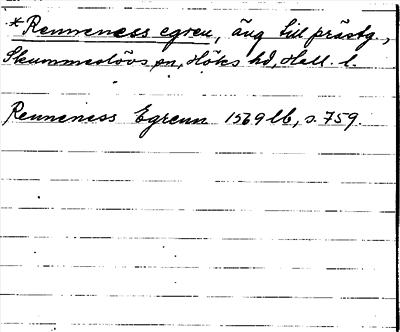 *Renneness egren, äng till prästg.,
Skummeslövs sn, Höks hd, Hall. l.
Renneness Egrenn 1569 lb, s. 759.